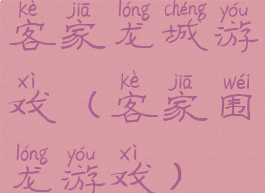 kè jiā lóng chéng yóu
客家龙城游
xì kè jiā wéi
戏（客家围
lóng yóu xì
龙游戏）